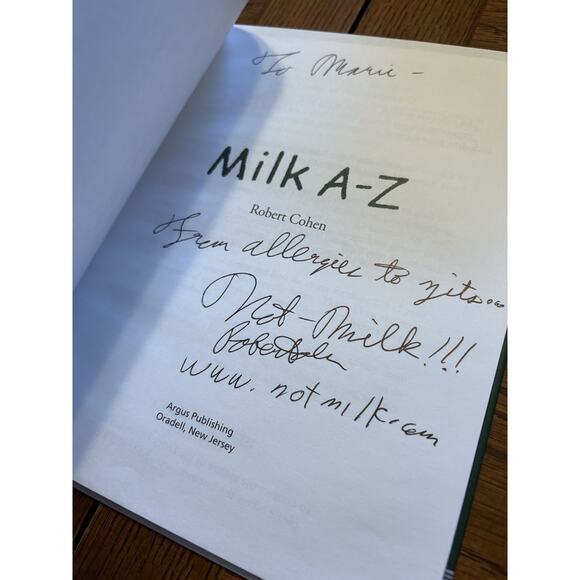 To Marie -
Milk A-Z
Robert Cohen
From allergies to zits...
Not-Milk!!!
Robert Cohen
www.notmilk.com
Argus Publishing
Oradell, New Jersey